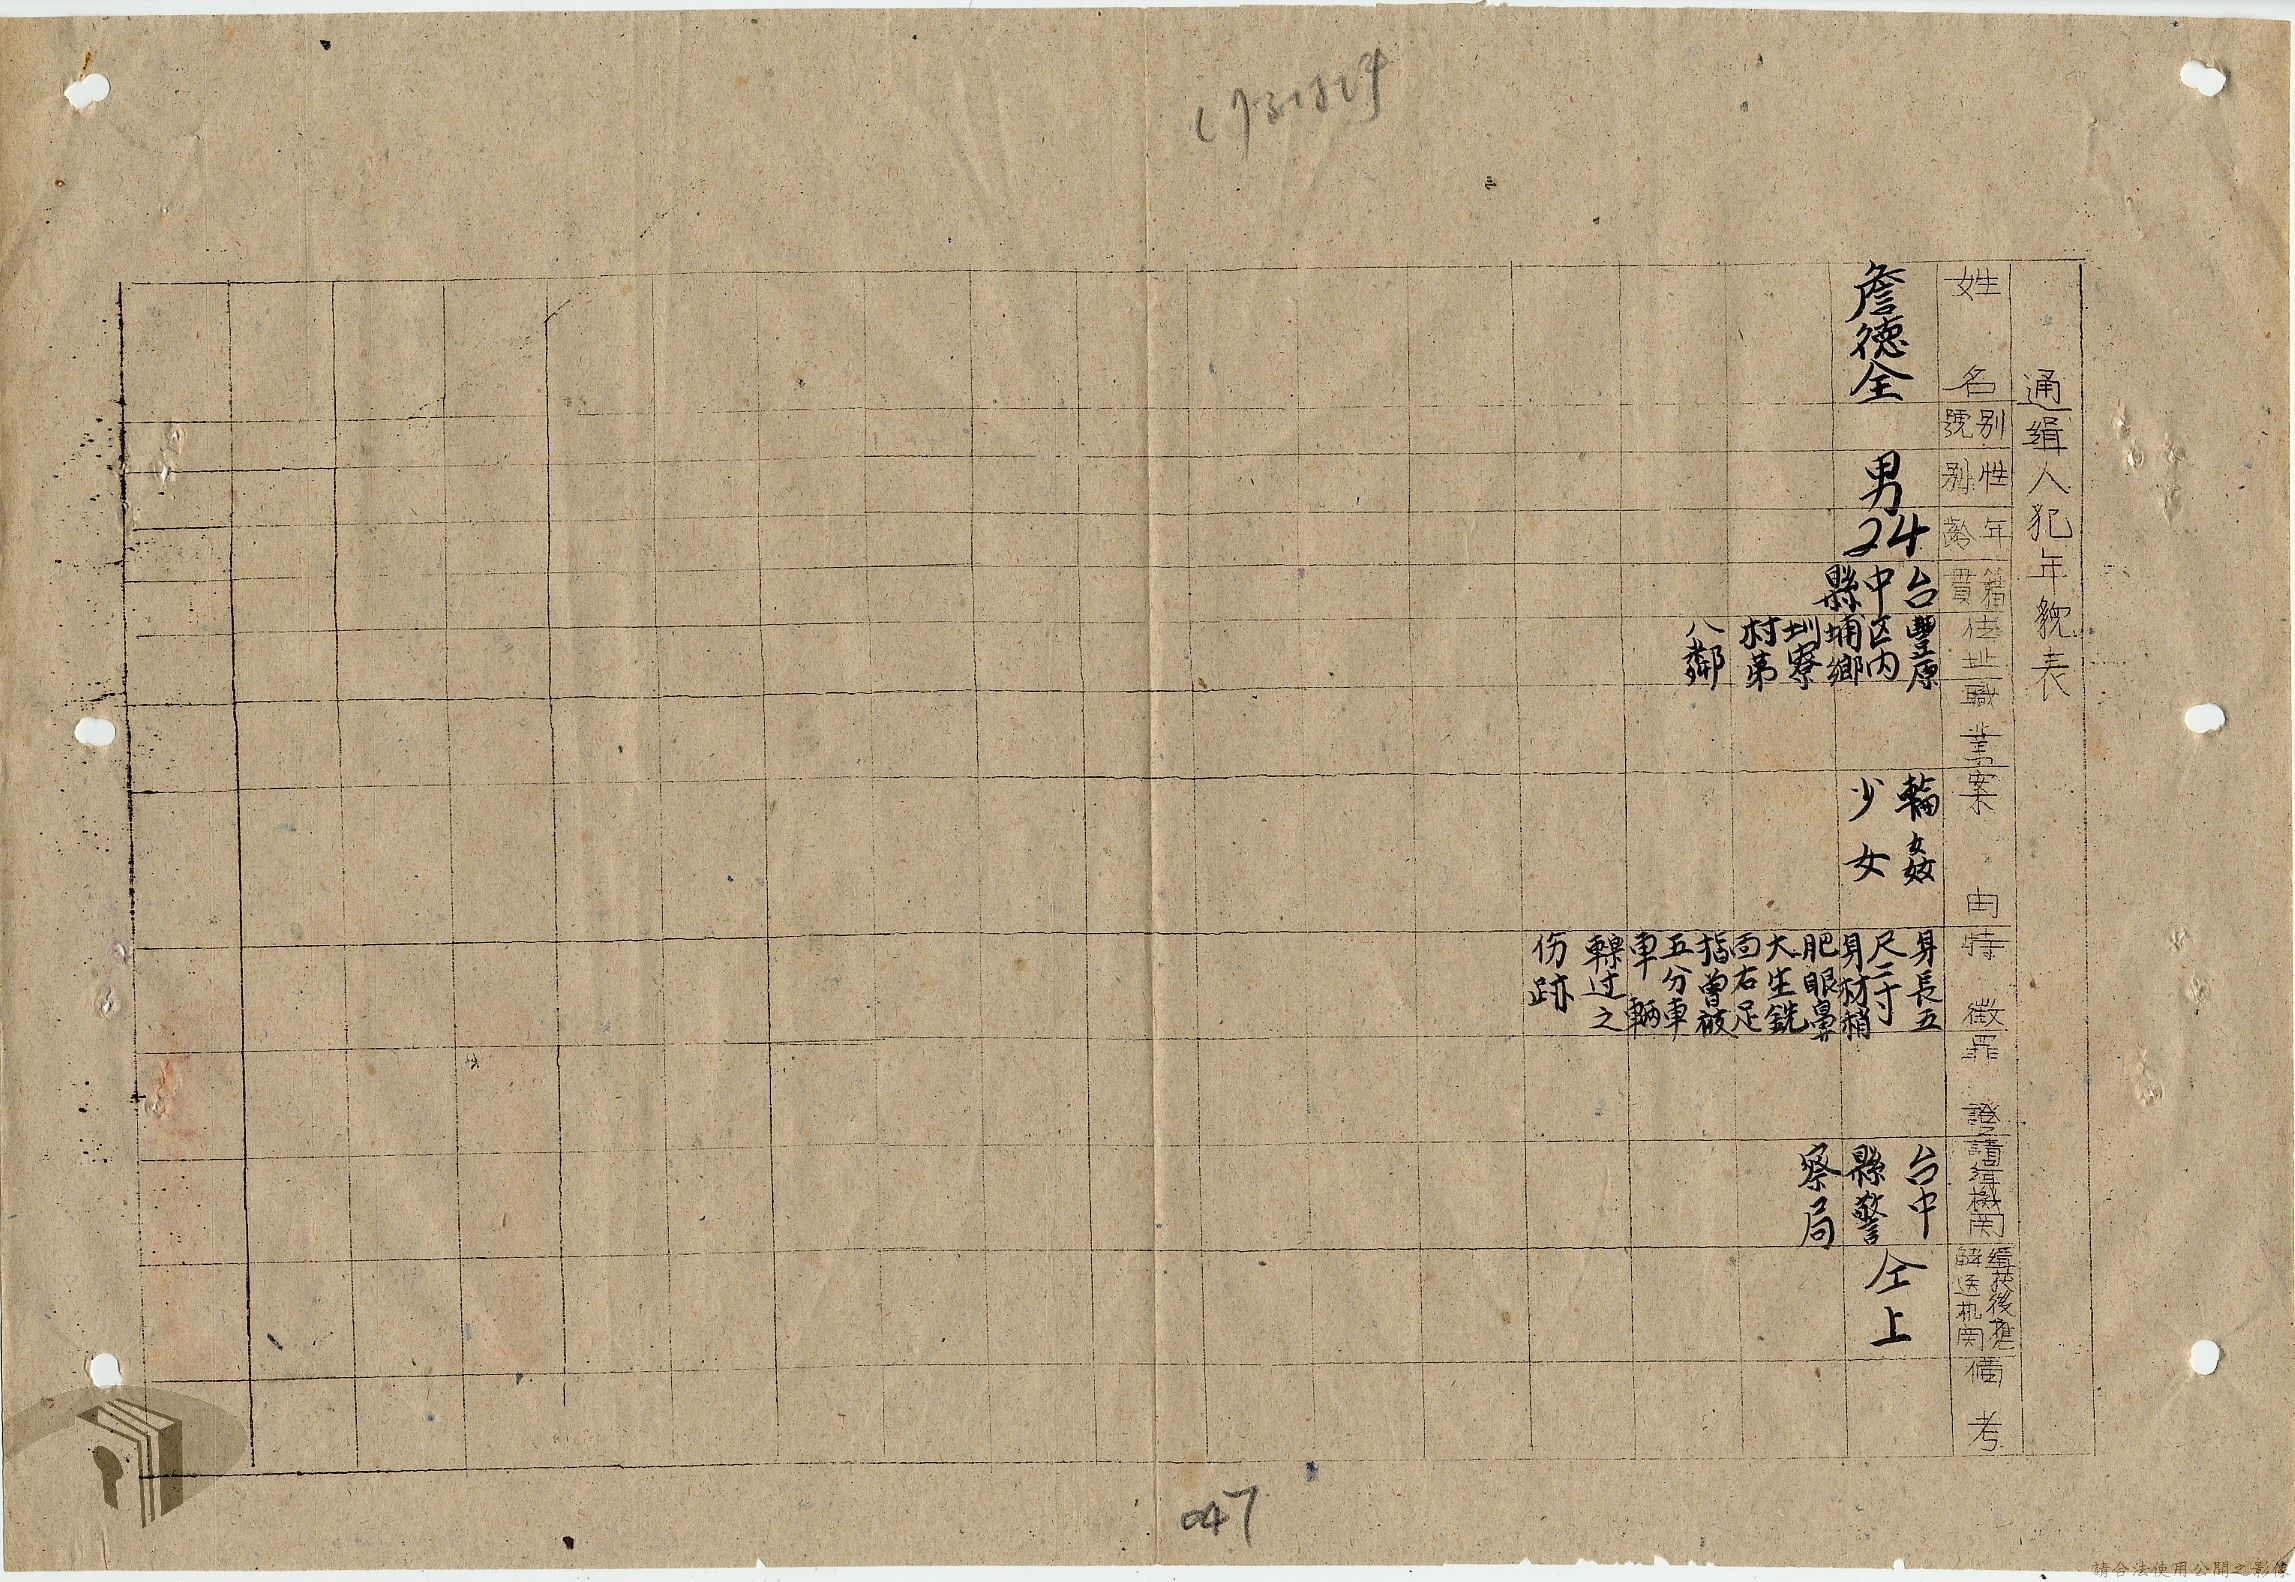 通緝人犯年貌表
姓名
別號
性別
年齡
籍貫
住址
職業
案由
特徵
罪證
請緝機関
緝获後推
解送机関
備考
詹德全
男
24
台
中
縣
豐原
区内
埔鄉
圳寮
村第
八鄰
輪姦
少女
身長五
尺二寸
身材稍
肥眼鼻
大生銑
面右足
指曾被
五分車
車輛
轢过之
伤跡
台中
縣警
察局
仝上
047
請合法使用公開之影像